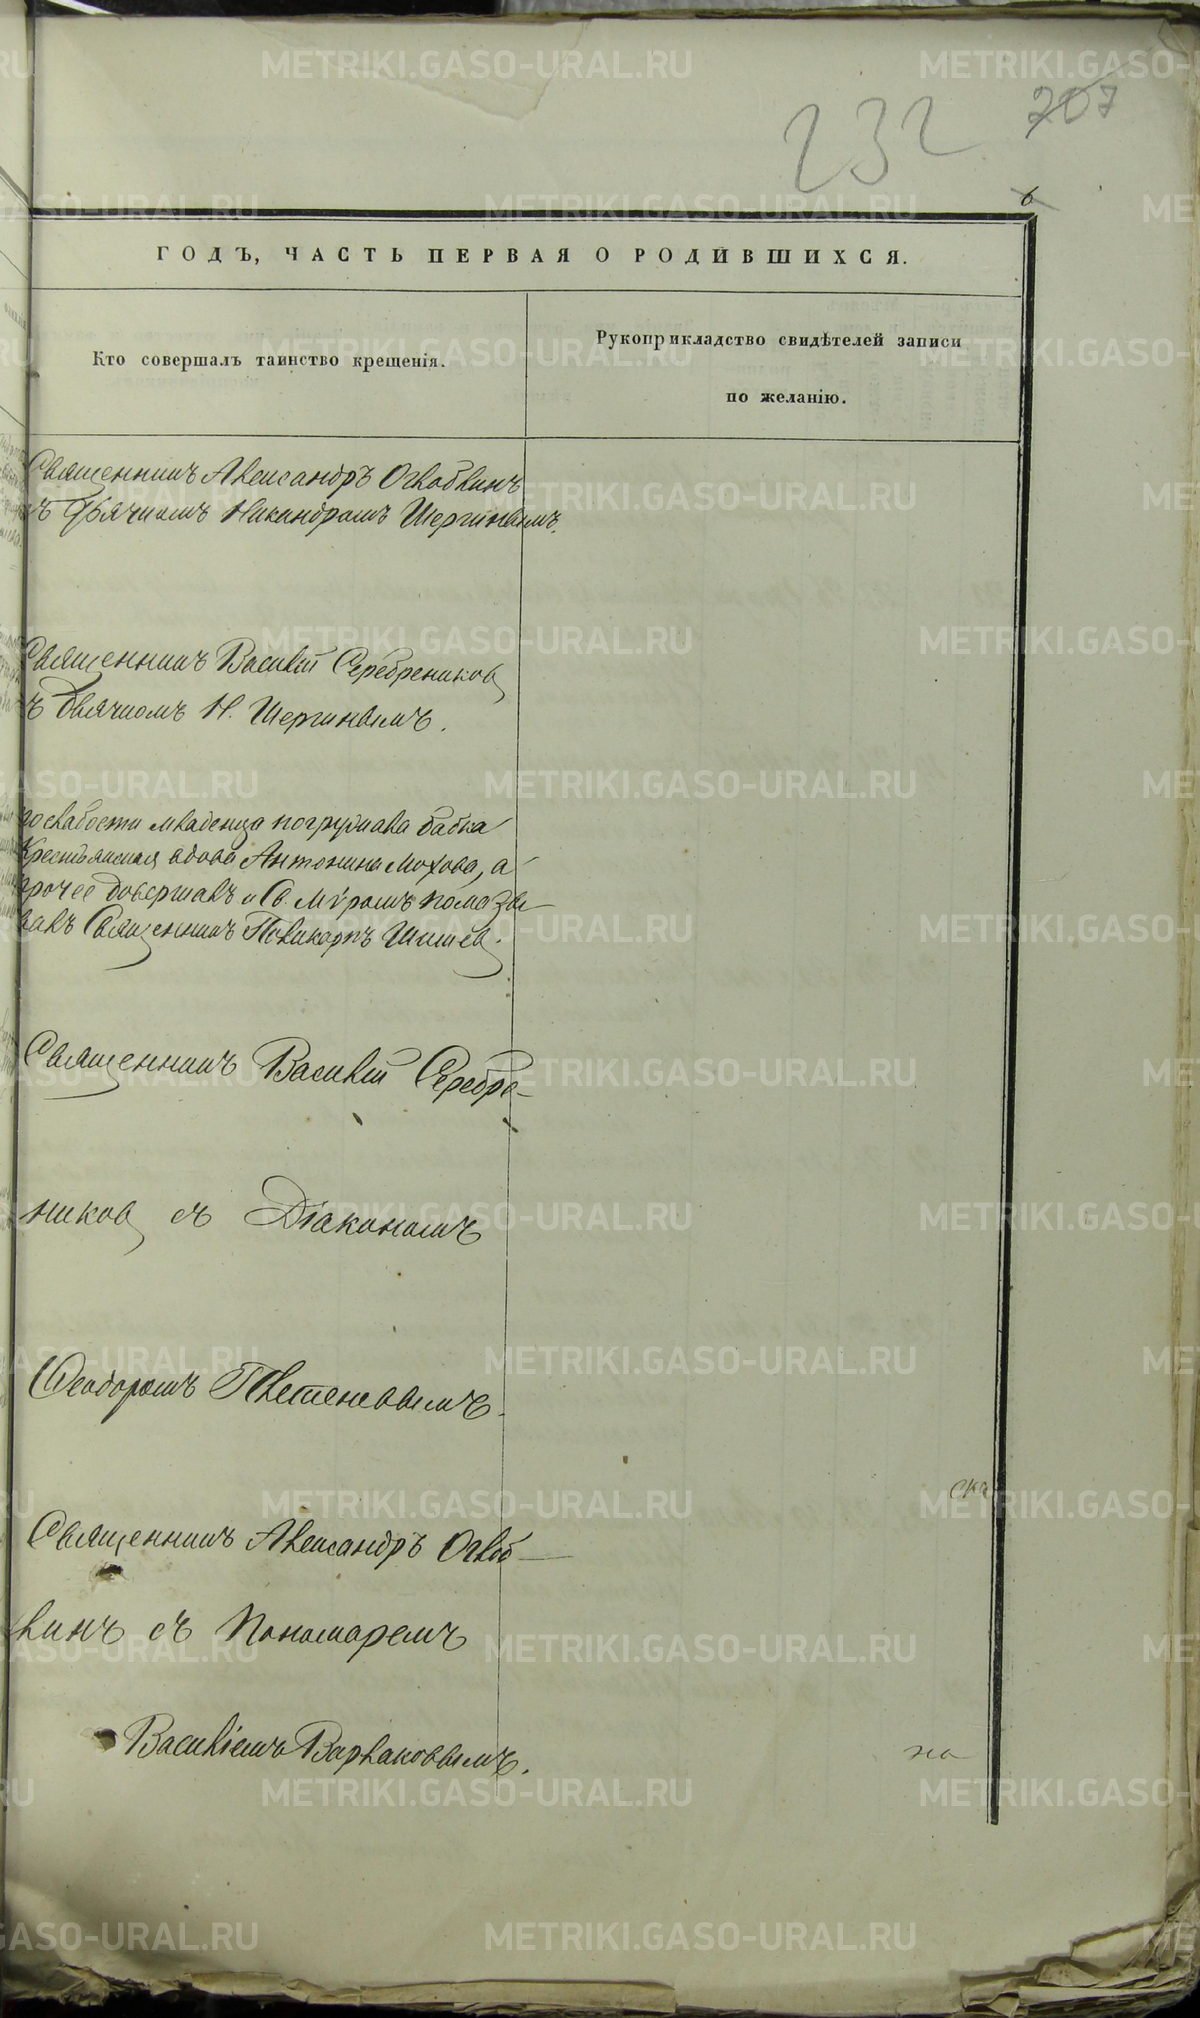 232 207
6
ГОДЪ, ЧАСТЬ ПЕРВАЯ О РОДИВШИХСЯ.
Кто совершалъ таинство крещенія.
Рукоприкладство свидѣтелей записи
по желанію.
Священникъ Александръ Оглоблинъ
съ Дьячкомъ Никандромъ Шергинымъ.
Священникъ Василій Серебренниковъ
съ Дьячкомъ Н. Шергинымъ.
По слабости младенца погружала бабка
Крестьянская вдова Антонина Мохова, а
прочее довершалъ и Св. Мѵромъ помазы-
валъ Священникъ Поликарпъ Шишевъ.
Священникъ Василій Серебре-
никовъ съ Діакономъ
Ѳеодоромъ Плетеневымъ.
Священникъ Александръ Оглоб-
линъ съ Пономаремъ
Василіемъ Варлаковымъ.
ска
на
METRIKI.GASO-URAL.RU